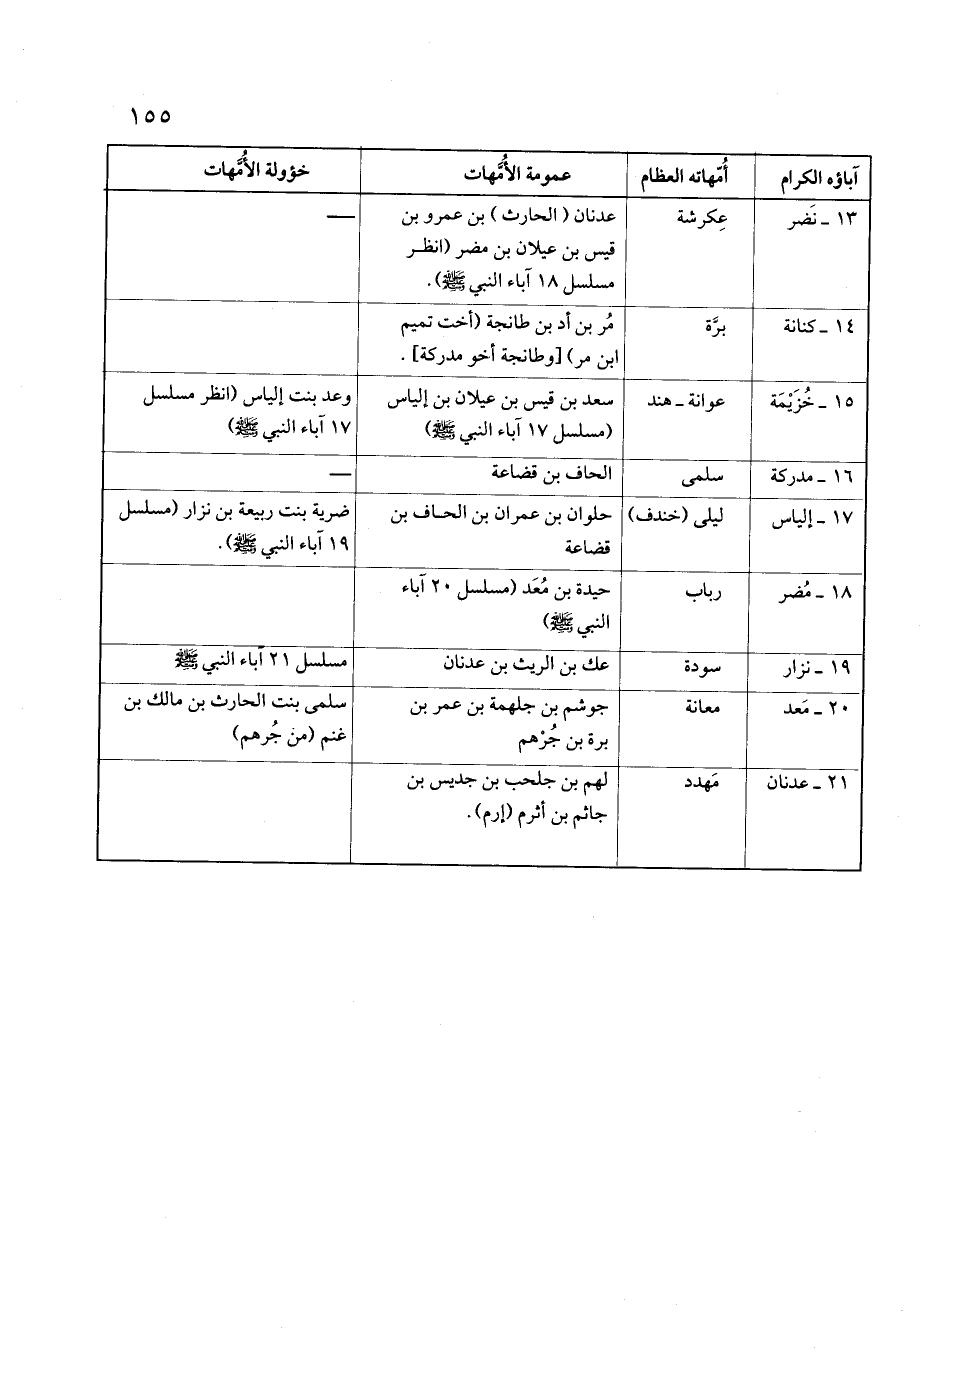 ١٥٥
آباؤه الكرام	أُمّهاته العظام	عمومة الأُمَّهات	خؤولة الأُمَّهات
١٣ ـ نَضر	عِكرشة	عدنان ( الحارث ) بن عمرو بن	—
قيس بن عيلان بن مضر (انظر
مسلسل ١٨ آباء النبي ﷺ).
١٤ ـ كنانة	برَّة	مُر بن أد بن طانجة (أخت تميم
ابن مر) [وطانجة أخو مدركة] .
١٥ ـ خُزَيْمَة	عوانة ـ هند	سعد بن قيس بن عيلان بن إلياس	وعد بنت إلياس (انظر مسلسل
(مسلسل ١٧ آباء النبي ﷺ)	١٧ آباء النبي ﷺ)
١٦ ـ مدركة	سلمى	الحاف بن قضاعة	—
١٧ ـ إلياس	ليلى (خندف)	حلوان بن عمران بن الحاف بن	ضرية بنت ربيعة بن نزار (مسلسل
قضاعة	١٩ آباء النبي ﷺ).
١٨ ـ مُضر	رباب	حيدة بن مُعَد (مسلسل ٢٠ آباء
النبي ﷺ)
١٩ ـ نزار	سودة	عك بن الريث بن عدنان	مسلسل ٢١ آباء النبي ﷺ
٢٠ ـ مَعد	معانة	جوشم بن جلهمة بن عمر بن	سلمى بنت الحارث بن مالك بن
برة بن جُرْهم	غنم (من جُرهم)
٢١ ـ عدنان	مَهدد	لهم بن جلحب بن جديس بن
جاثم بن أثرم (إرم).